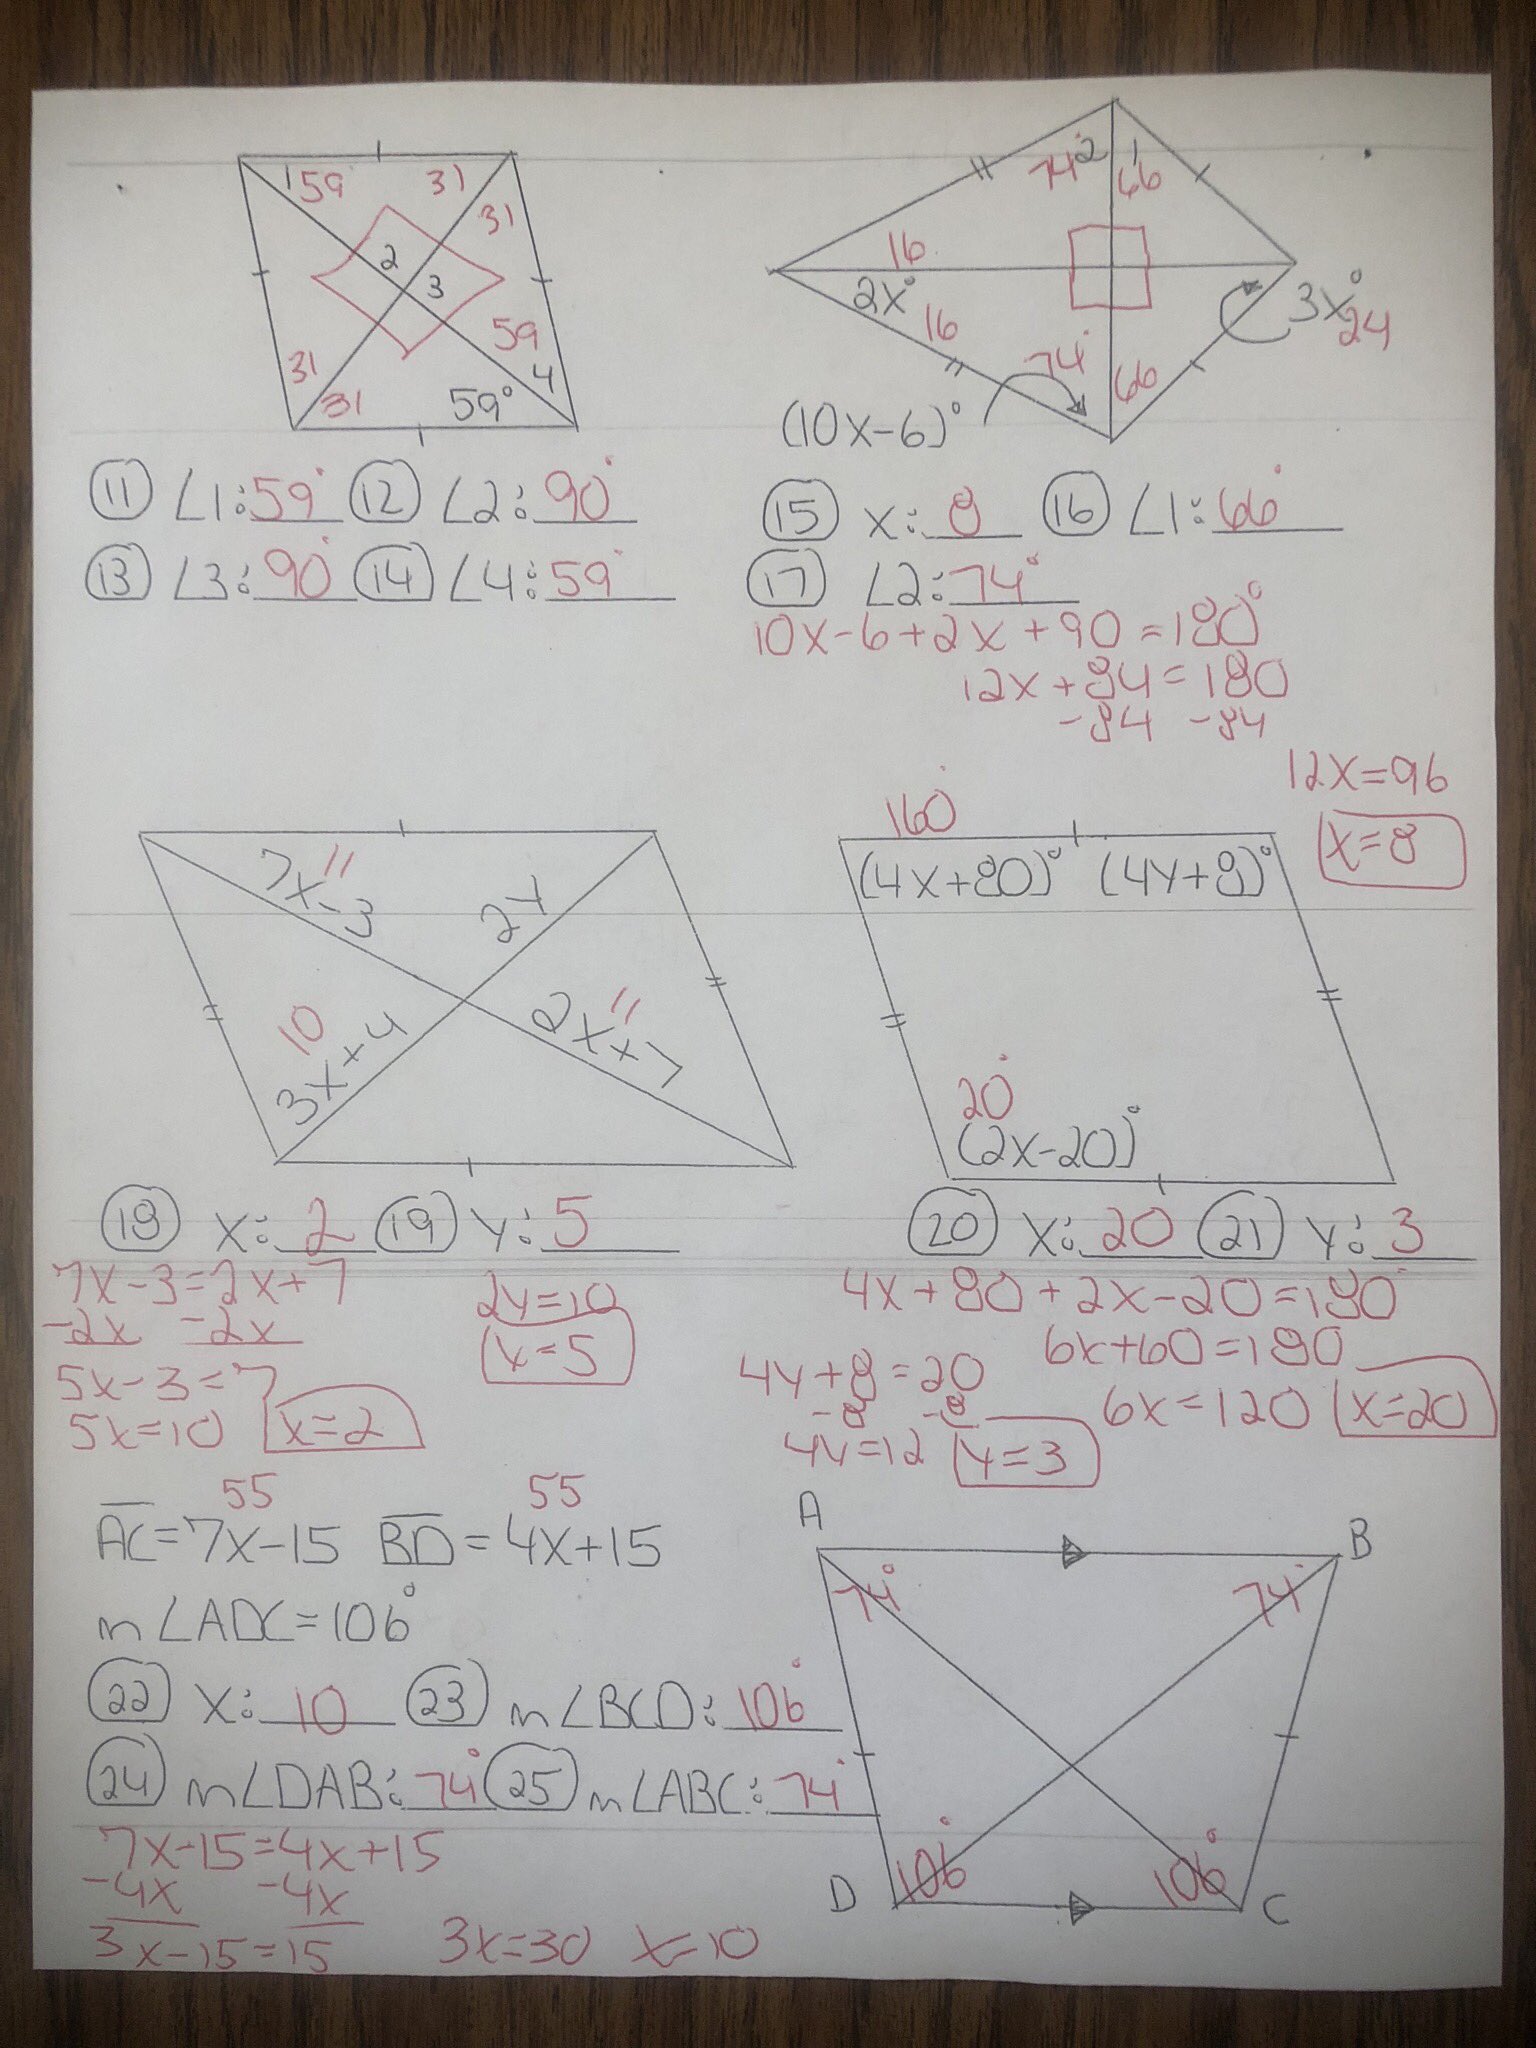 1 59 31
31
2 3
59
31 4
31 59°
74° 2 1
66
16
2x°
16
3x°
24
74°
66
(10x-6)°
⑪ ∠1: 59° ⑫ ∠2: 90°
⑬ ∠3: 90° ⑭ ∠4: 59°
⑮ x: 8 ⑯ ∠1: 66°
⑰ ∠2: 74°
10x-6+2x+90=180°
12x+84=180
-84 -84
12x=96
x=8
11
7x-3 2y
10 11
3x+4 2x+7
160°
(4x+80)° (4y+8)°
20°
(2x-20)°
⑱ x: 2 ⑲ y: 5
7x-3=2x+7
-2x -2x
5x-3=7
5x=10 x=2
2y=10
y=5
⑳ x: 20 ㉑ y: 3
4x+80+2x-20=180°
6x+60=180
6x=120 x=20
4y+8=20
-8 -8
4y=12 y=3
55 55
AC=7x-15 BD=4x+15
m∠ADC=106°
㉒ x: 10 ㉓ m∠BCD: 106°
㉔ m∠DAB: 74° ㉕ m∠ABC: 74°
7x-15=4x+15
-4x -4x
3x-15=15 3x=30 x=10
A B
74° 74°
106° 106°
D C